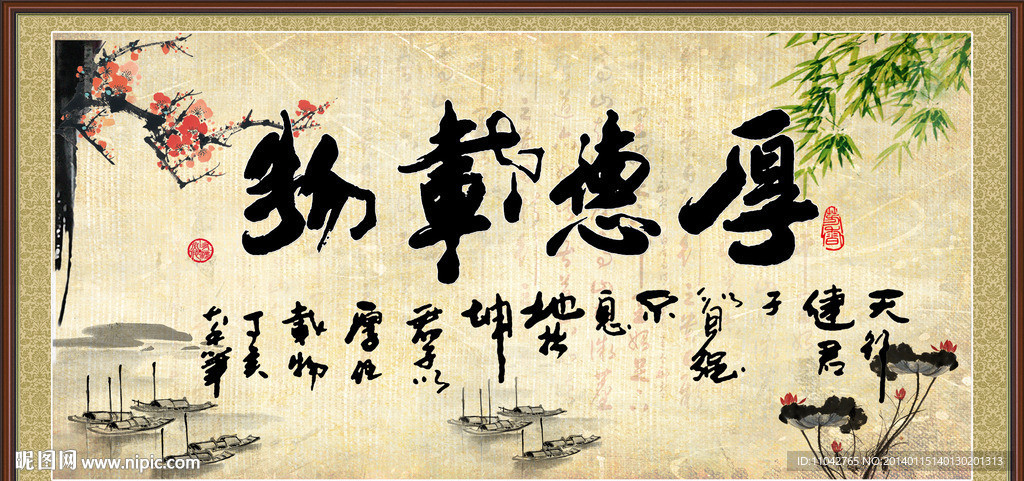 厚德載物
天行
健君
子
以自强
不
息
地势
坤
君子以
厚德
載物
丁亥
昵图网 www.nipic.com
ID:11042765 NO:20140115140130201313